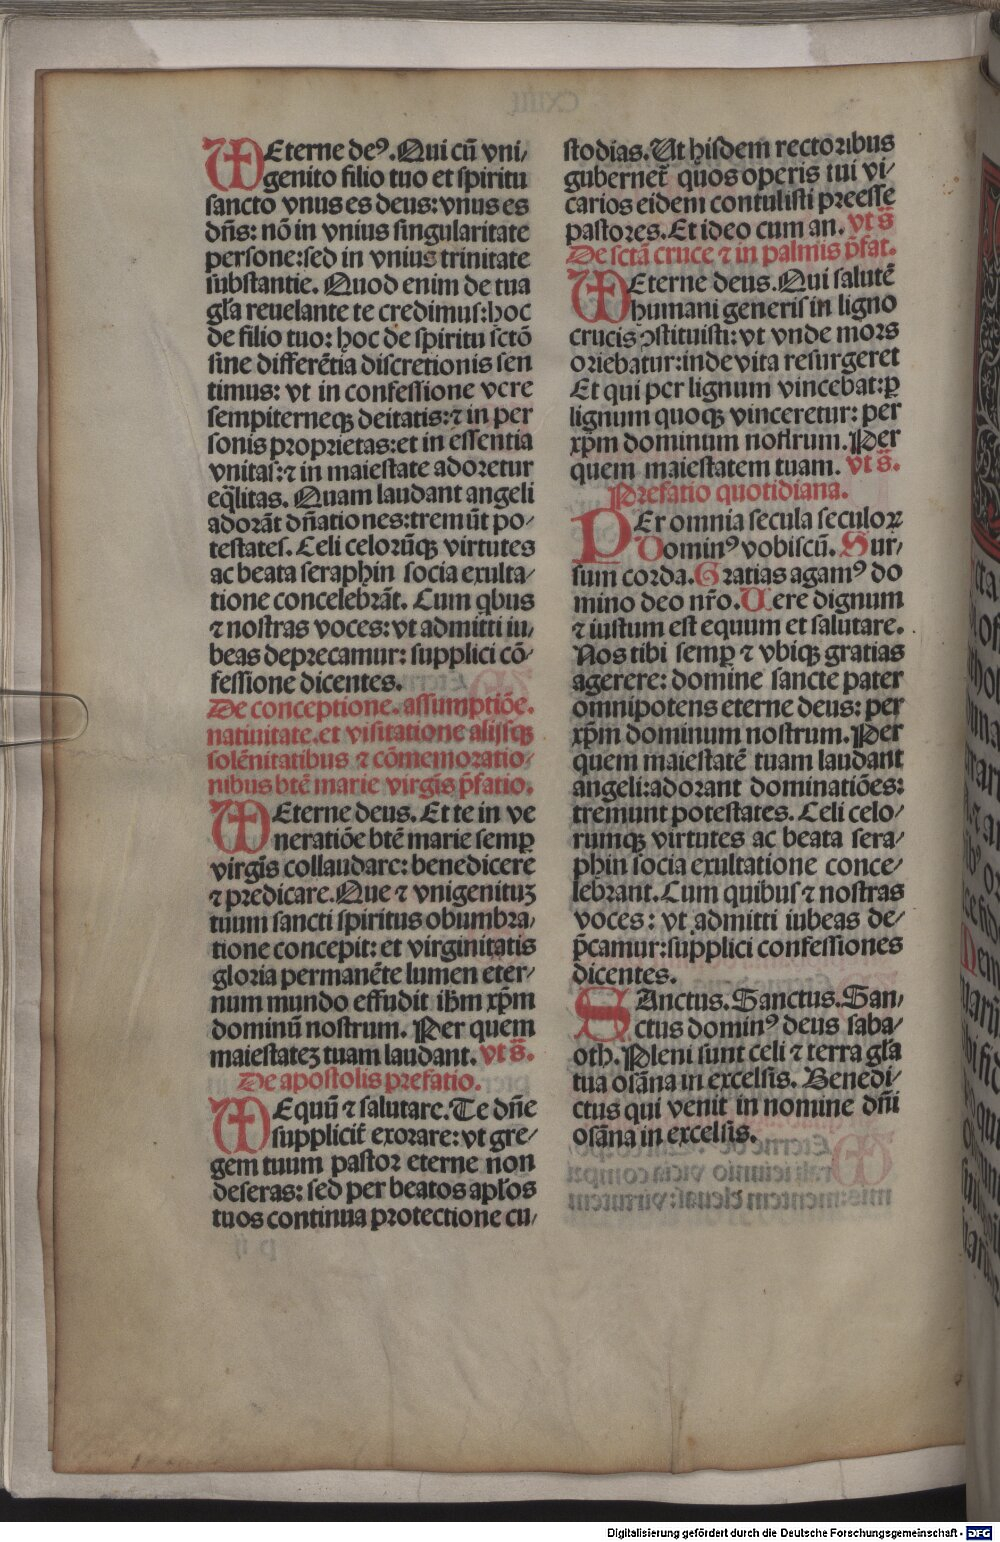 Eterne deꝰ. Qui cū vni/
genito filio tuo et spiritu
sancto vnus es deus: vnus es
dñs: nō in vnius singularitate
persone: sed in vnius trinitate
substantie. Quod enim de tua
gl̄a reuelante te credimus: hoc
de filio tuo: hoc de spiritu sctō
sine differētia discretionis sen
timus: vt in confessione vere
sempiterneqꝫ deitatis: ⁊ in per
sonis proprietas: et in essentia
vnitas: ⁊ in maiestate adoretur
eq̄litas. Quam laudant angeli
adorāt dn̄ationes: tremūt po/
testates. Celi celorūqꝫ virtutes
ac beata seraphin socia exulta/
tione concelebrāt. Cum qbus
⁊ nostras voces: vt admitti iu/
beas deprecamur: supplici cō/
fessione dicentes.
De conceptione. assumptiōe.
natiuitate. et visitatione alijsqꝫ
solēnitatibus ⁊ cōmemoratio/
nibus btē marie virgīs p̄fatio.
Eterne deus. Et te in ve
neratiōe btē marie semꝑ
virgīs collaudare: benedicere
⁊ predicare. Que ⁊ vnigenituꝫ
tuum sancti spiritus obumbra/
tione concepit: et virginitatis
gloria permanēte lumen eter/
num mundo effudit ihm̄ xp̄m
dominū nostrum. Per quem
maiestateꝫ tuam laudant. vt s̄.
De apostolis prefatio.
Equū ⁊ salutare. Te dn̄e
suppliciť exorare: vt gre/
gem tuum pastor eterne non
deseras: sed per beatos apl̄os
tuos continua protectione cu/
stodias. Ut hisdem rectoribus
gubernet̄ quos operis tui vi/
carios eidem contulisti preesse
pastores. Et ideo cum an. vt s̄
De sctā cruce ⁊ in palmis p̄fat.
Eterne deus. Qui salutē
humani generis in ligno
crucis ꝯstituisti: vt vnde mors
oriebatur: inde vita resurgeret
Et qui per lignum vincebat: ꝑ
lignum quoqꝫ vinceretur: per
xp̄m dominum nostrum. Per
quem maiestatem tuam. vt s̄.
Prefatio quotidiana.
PEr omnia secula seculoꝝ
Dominꝰ vobiscū. Sur/
sum corda. Gratias agamꝰ do
mino deo nr̄o. Uere dignum
⁊ iustum est equum et salutare.
Nos tibi semꝑ ⁊ vbiqꝫ gratias
agerere: domine sancte pater
omnipotens eterne deus: per
xp̄m dominum nostrum. Per
quem maiestatē tuam laudant
angeli: adorant dominatiōes:
tremunt potestates. Celi celo/
rumqꝫ virtutes ac beata sera/
phin socia exultatione conce/
lebrant. Cum quibus ⁊ nostras
voces: vt admitti iubeas de/
p̄camur: supplici confessiones
dicentes.
SAnctus. Sanctus. San/
ctus dominꝰ deus saba/
oth. Pleni sunt celi ⁊ terra gl̄a
tua osāna in excelsis. Benedi/
ctus qui venit in nomine dn̄i
osāna in excelsis.
Digitalisierung gefördert durch die Deutsche Forschungsgemeinschaft - DFG